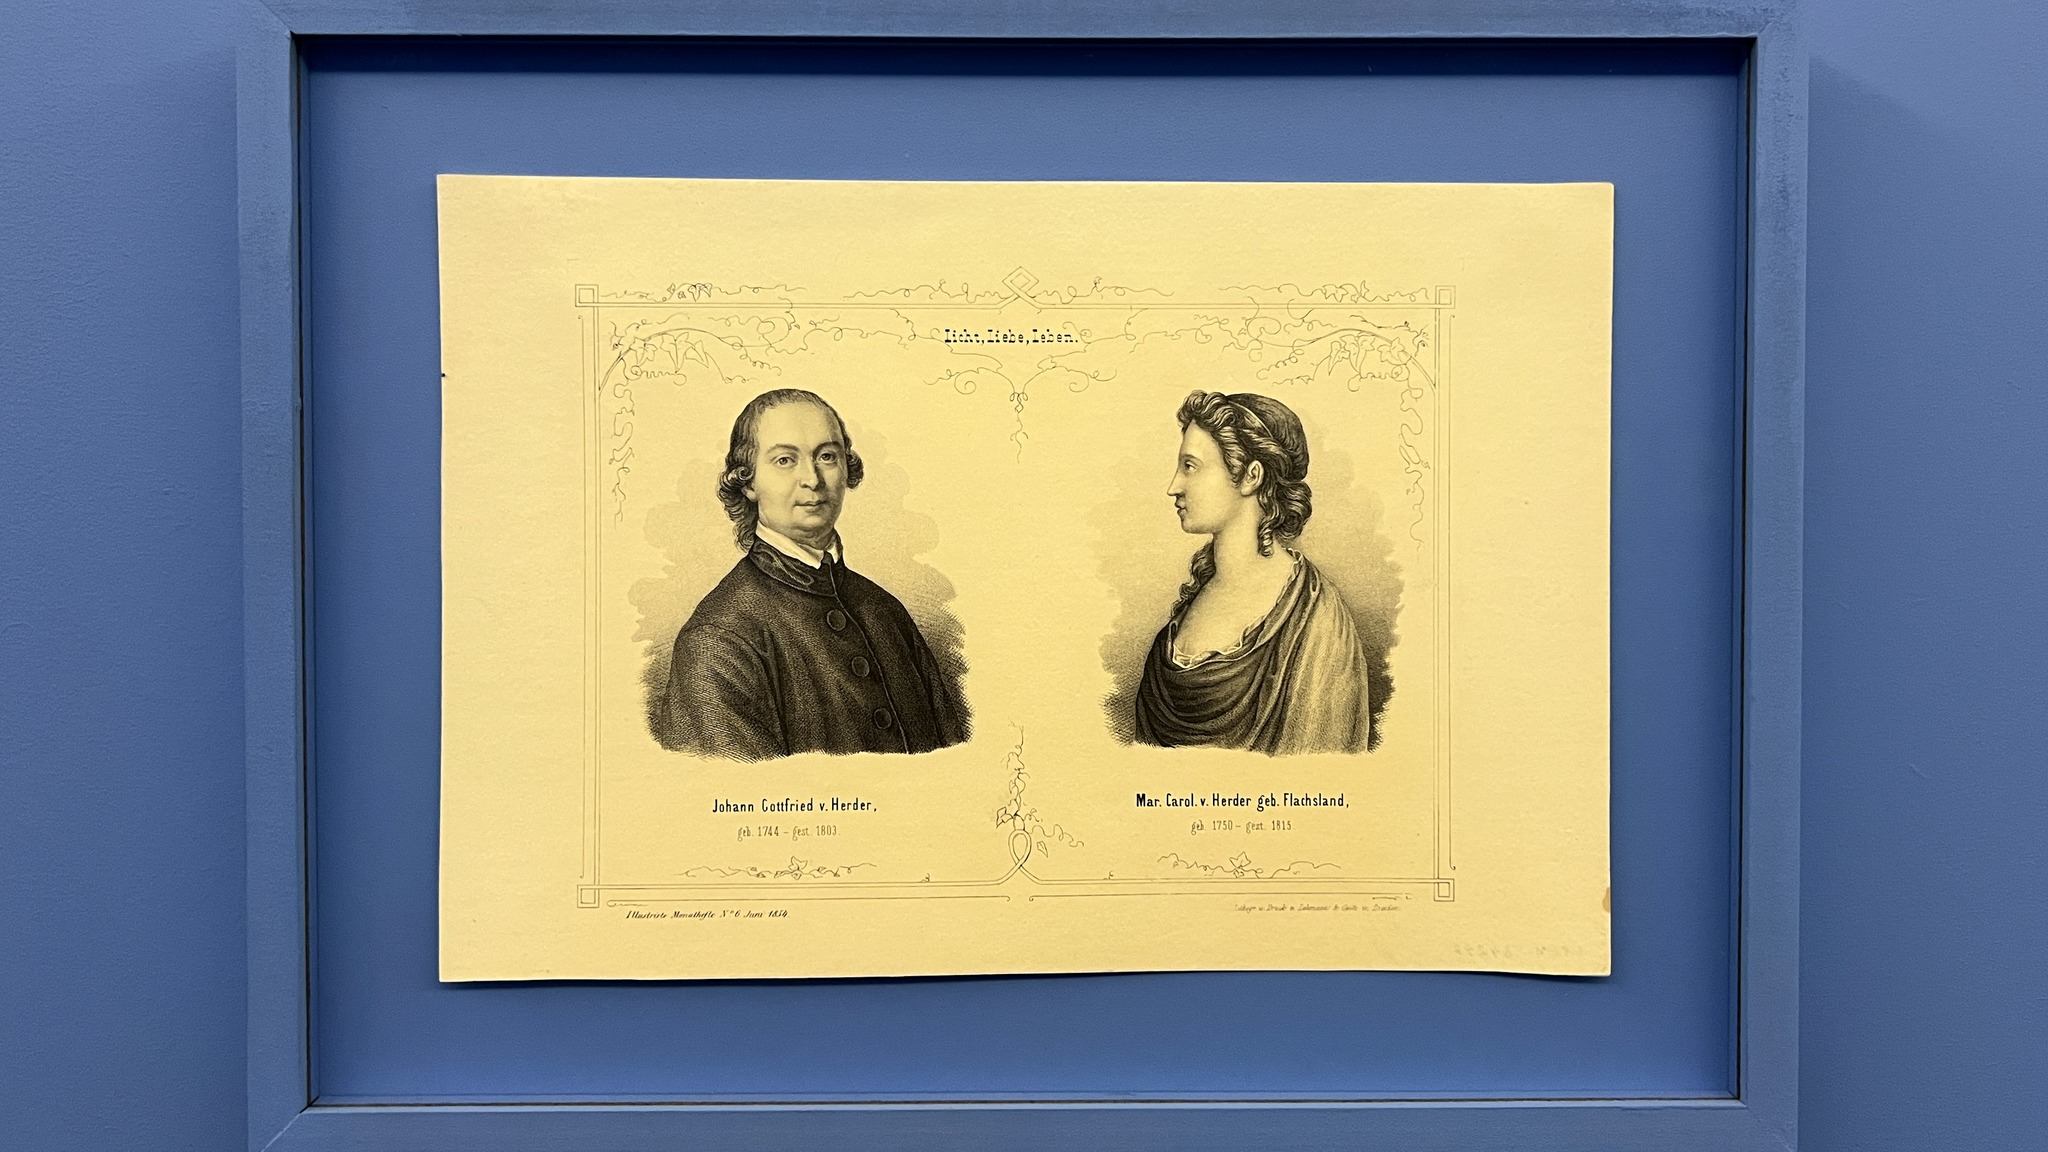 Licht, Liebe, Leben.
Johann Gottfried v. Herder,
geb. 1744 – gest. 1803.
Mar. Carol. v. Herder geb. Flachsland,
geb. 1750 – gest. 1815.
Illustrirte Monathefte N° 6 Juni 1854.
Druck